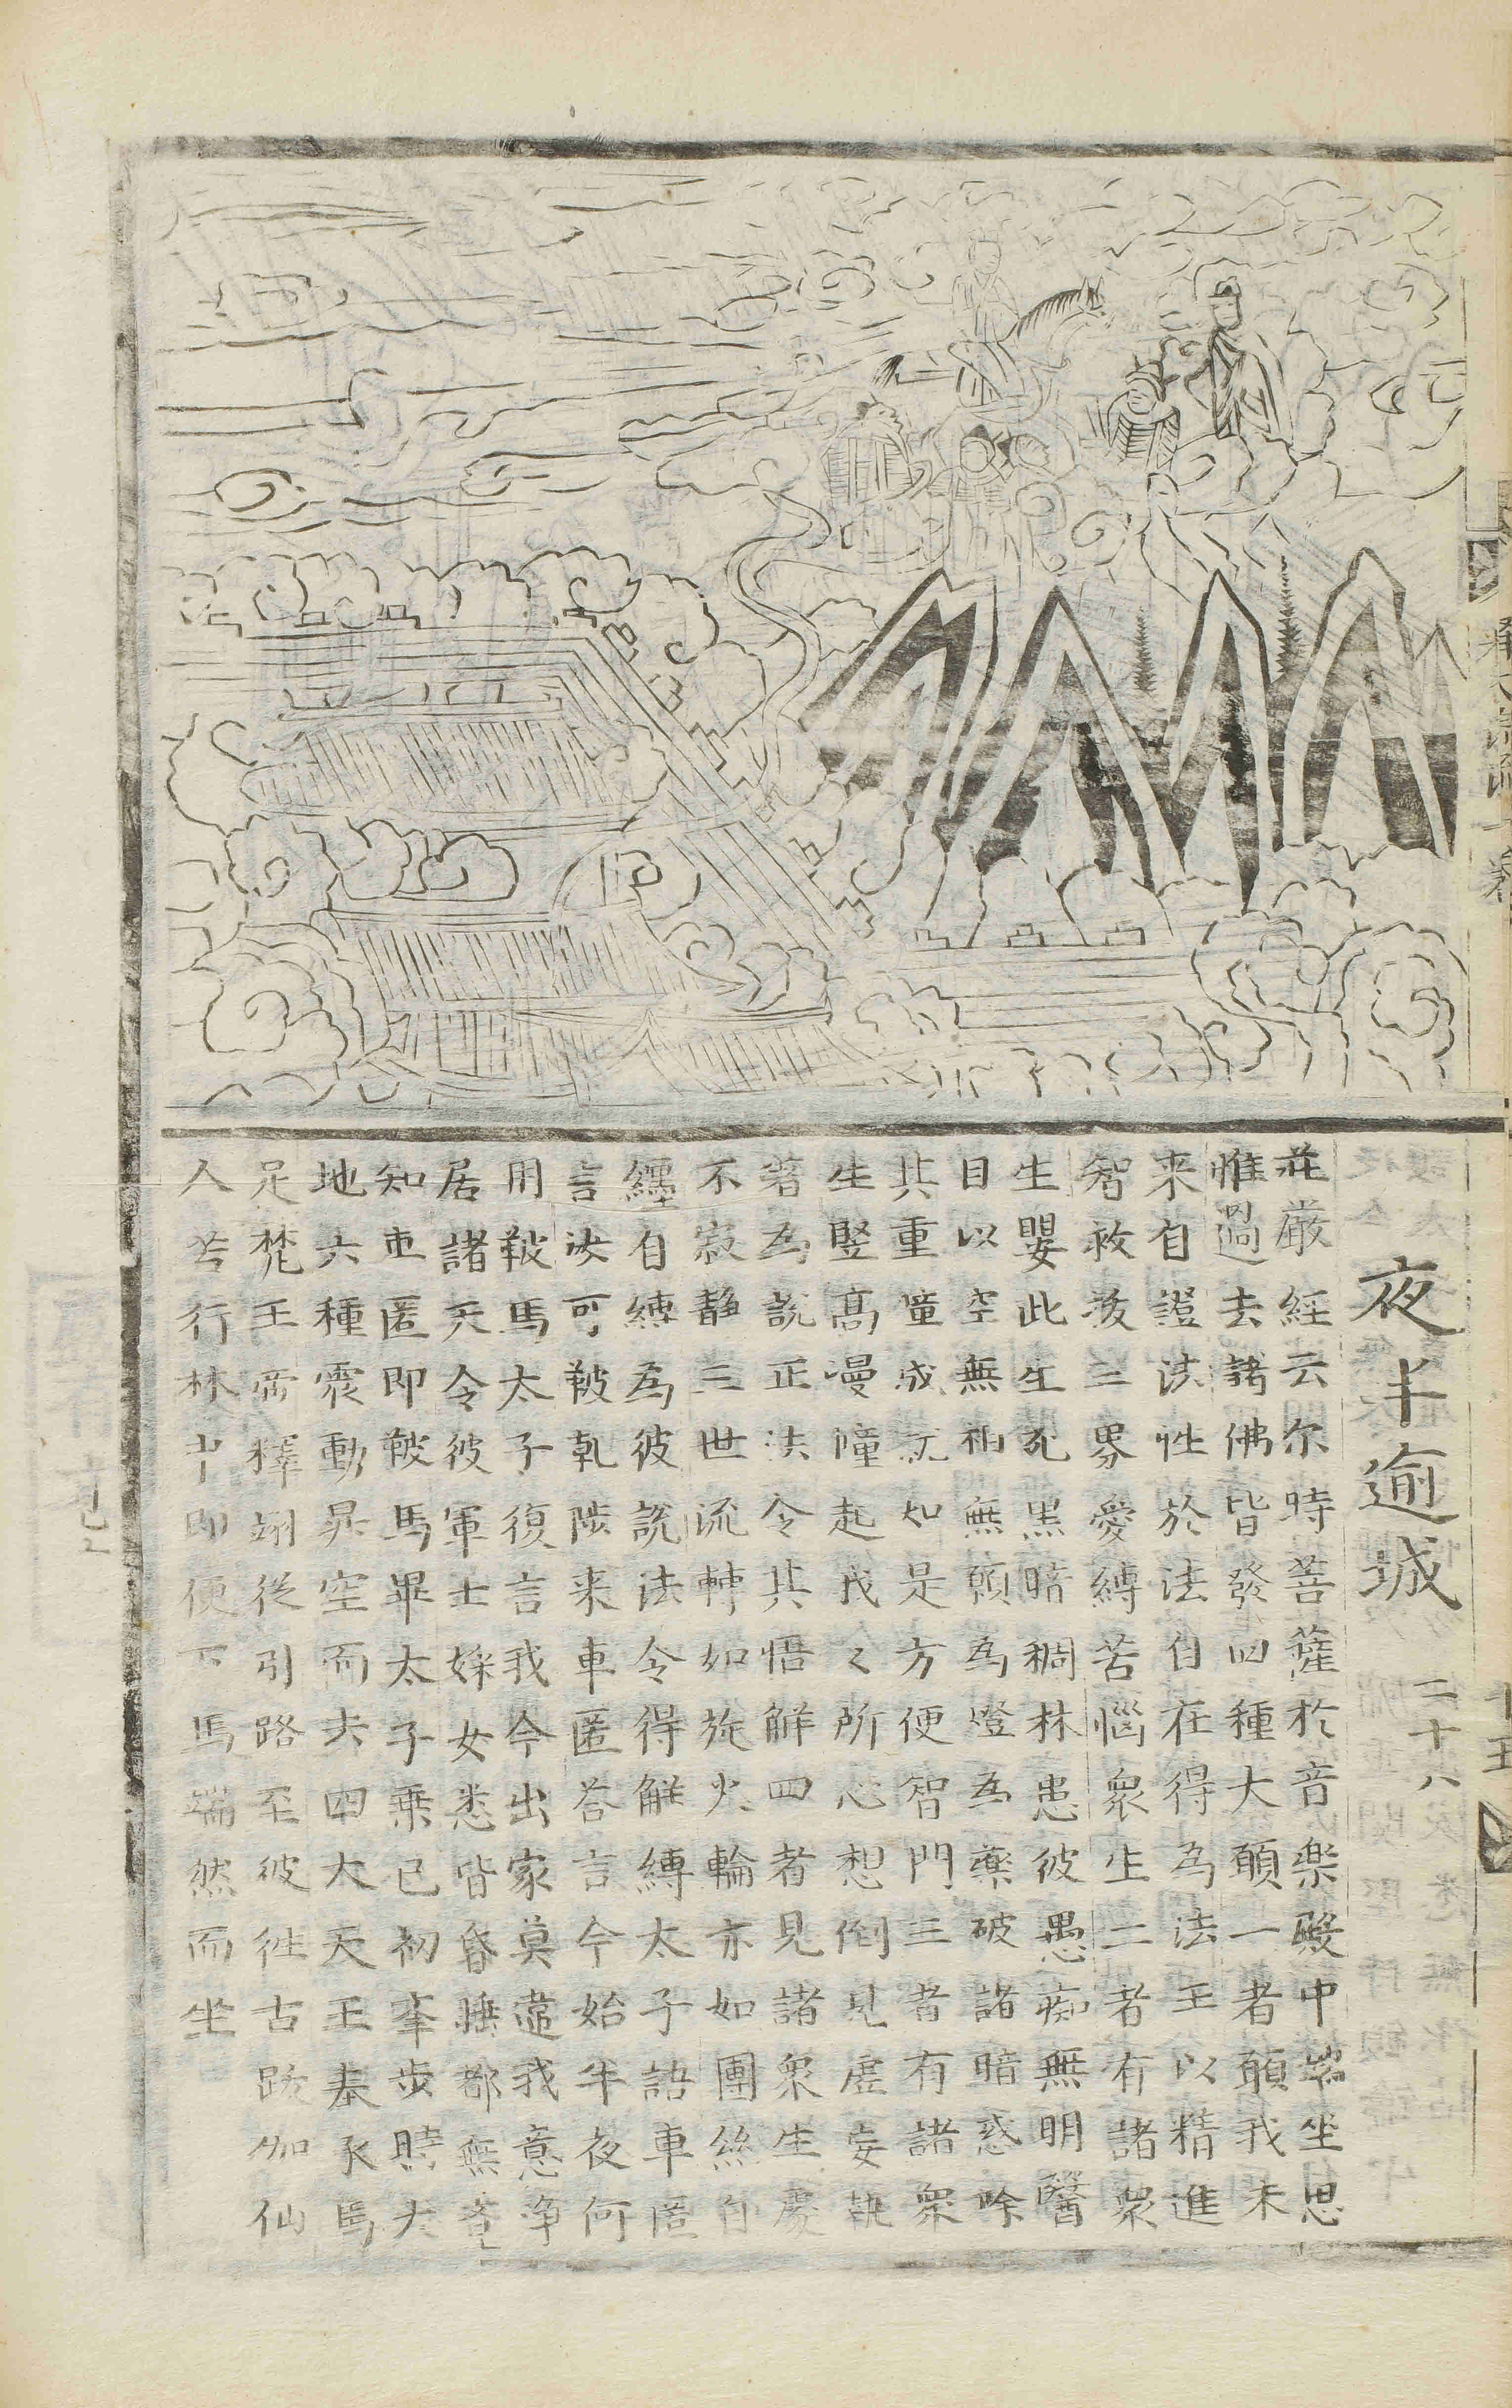 夜半逾城
二十八
莊嚴經云尓時菩薩於音樂殿中端坐思
惟過去諸佛皆發四種大願一者願我未
来自證法性於法自在得為法王以精進
智救㧞三界愛縛苦惱衆生二者有諸衆
生嬰此生死黒暗稠林患彼愚痴無明翳
目以空無相無願為燈為藥破諸暗惑除
其重障成就如是方便智門三者有諸衆
生竪髙慢幢起我々所心想倒見虚妄執
著為說正法令其悟解四者見諸衆生處
不寂静三世流轉如旋火輪亦如團絲自
纒自縛為彼說法令得解縛太子語車匿
言汝可鞁乹陟来車匿答言今始半夜何
用鞁馬太子復言我今出家莫違我意净
居諸天令彼軍士婇女悉皆昏睡都無覺
知車匿即鞁馬畢太子乗已初舉步時大
地六種震動昇空而去四大天王奉承馬
足梵王帝釋翊從引路至彼徃古跋伽仙
人苦行林中即便下馬端然而坐
十五